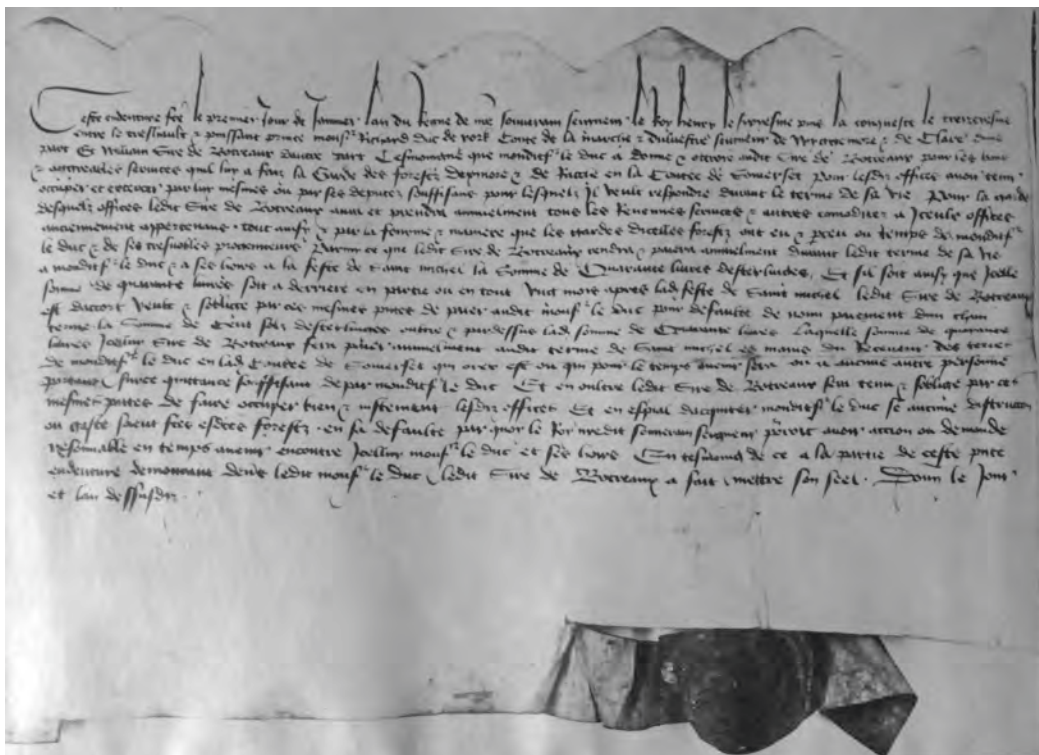 Ceste endenture fcē le premier Jour de Janvier lan du Regne de nrē souverain seigneur le Roy henry le sixiesme puis la conqueste le treiziesme
entre le treshault & puissant prince monsr Richard duc de york Conte de la marche & dulvestre seigneur de Wyggemore & de Clare dune
part Et William Sire de Botreaux dautre part Tesmoigne que monditsr le duc a donne & ottroie audit Sire de Botreaux pour ses bons
& aggreables services quil luy a faiz la Garde des forestz dexmore & de Racche en la Contee de Somerset Pour lesdiz offices avoir tenir
occuper et excercer par luy mesmes ou par ses deputez souffisans pour lesquelz Il veult respondre durant le terme de sa vie Pour la garde
desquelz offices ledit Sire de Botreaux aura et prendra annuelment tous les Revenues services & autres comoditez a Iceulx offices
anciennement appertenans tout ansy & par la fourme & maniere que les gardes dicelles forestz ont eu & perceu ou temps de monditsr
le duc & de ses tresnobles progeniteurs Parmy ce que ledit Sire de Botreaux rendra & paiera annuelment durant ledit terme de sa vie
a monditsr le duc & a ses hoirs a la feste de saint michel la Somme de Quarante livres desterlinges, Et sil soit ansy que Icelle
somme de quarante livres soit a derriere en partie ou en tout mois apres lad feste de Saint michel ledit Sire de Botreaux
est dacort veult & soblige par ces mesmes pntes de paier audit monsr le duc pour defaulte de nom paiement dun chūn
terme la Somme de Cent solz desterlinges oultre & pardessus lad somme de Quarante livres Laquelle somme de quarante
livres Icelluy Sire de Botreaux fera paier annuelment audit terme de Saint michel es mains du Receveur des terres
de monditsr le duc en lad Contee de Somerset qui ores est ou qui pour le temps avenir sera ou a aucune autre personne
portant seuree quittance souffisant depar monditsr le duc Et en oultre ledit Sire de Botreaux sera tenu & soblige par ces
mesmes pntes de faire occuper bien & justement lesdiz offices Et en espāl dacquiter monditsr le duc se aucune distruccon
ou gaste soient fces esdites forestz en sa defaulte par quoy le Roy nredit souverain seigneur pourroit avoir action ou demande
resonnable en temps avenir encontre Icelluy monsr le duc et ses hoirs En tesmoing de ce a la partie de ceste pnte
endenture demourant devers ledit monsr le duc ledit Sire de Botreaux a fait mettre son seel. Donn le Jour
et lan dessusdiz.